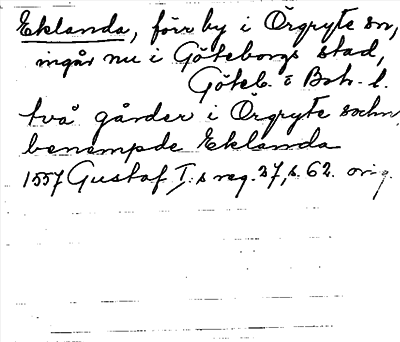 Eklanda, förr by i Örgryte sn,
ingår nu i Göteborgs stad,
Göteb. o Boh. l.
två gårder i Örgryte sochn
benempde Eklanda
1557 Gustaf I:s reg. 27, s. 62. orig.